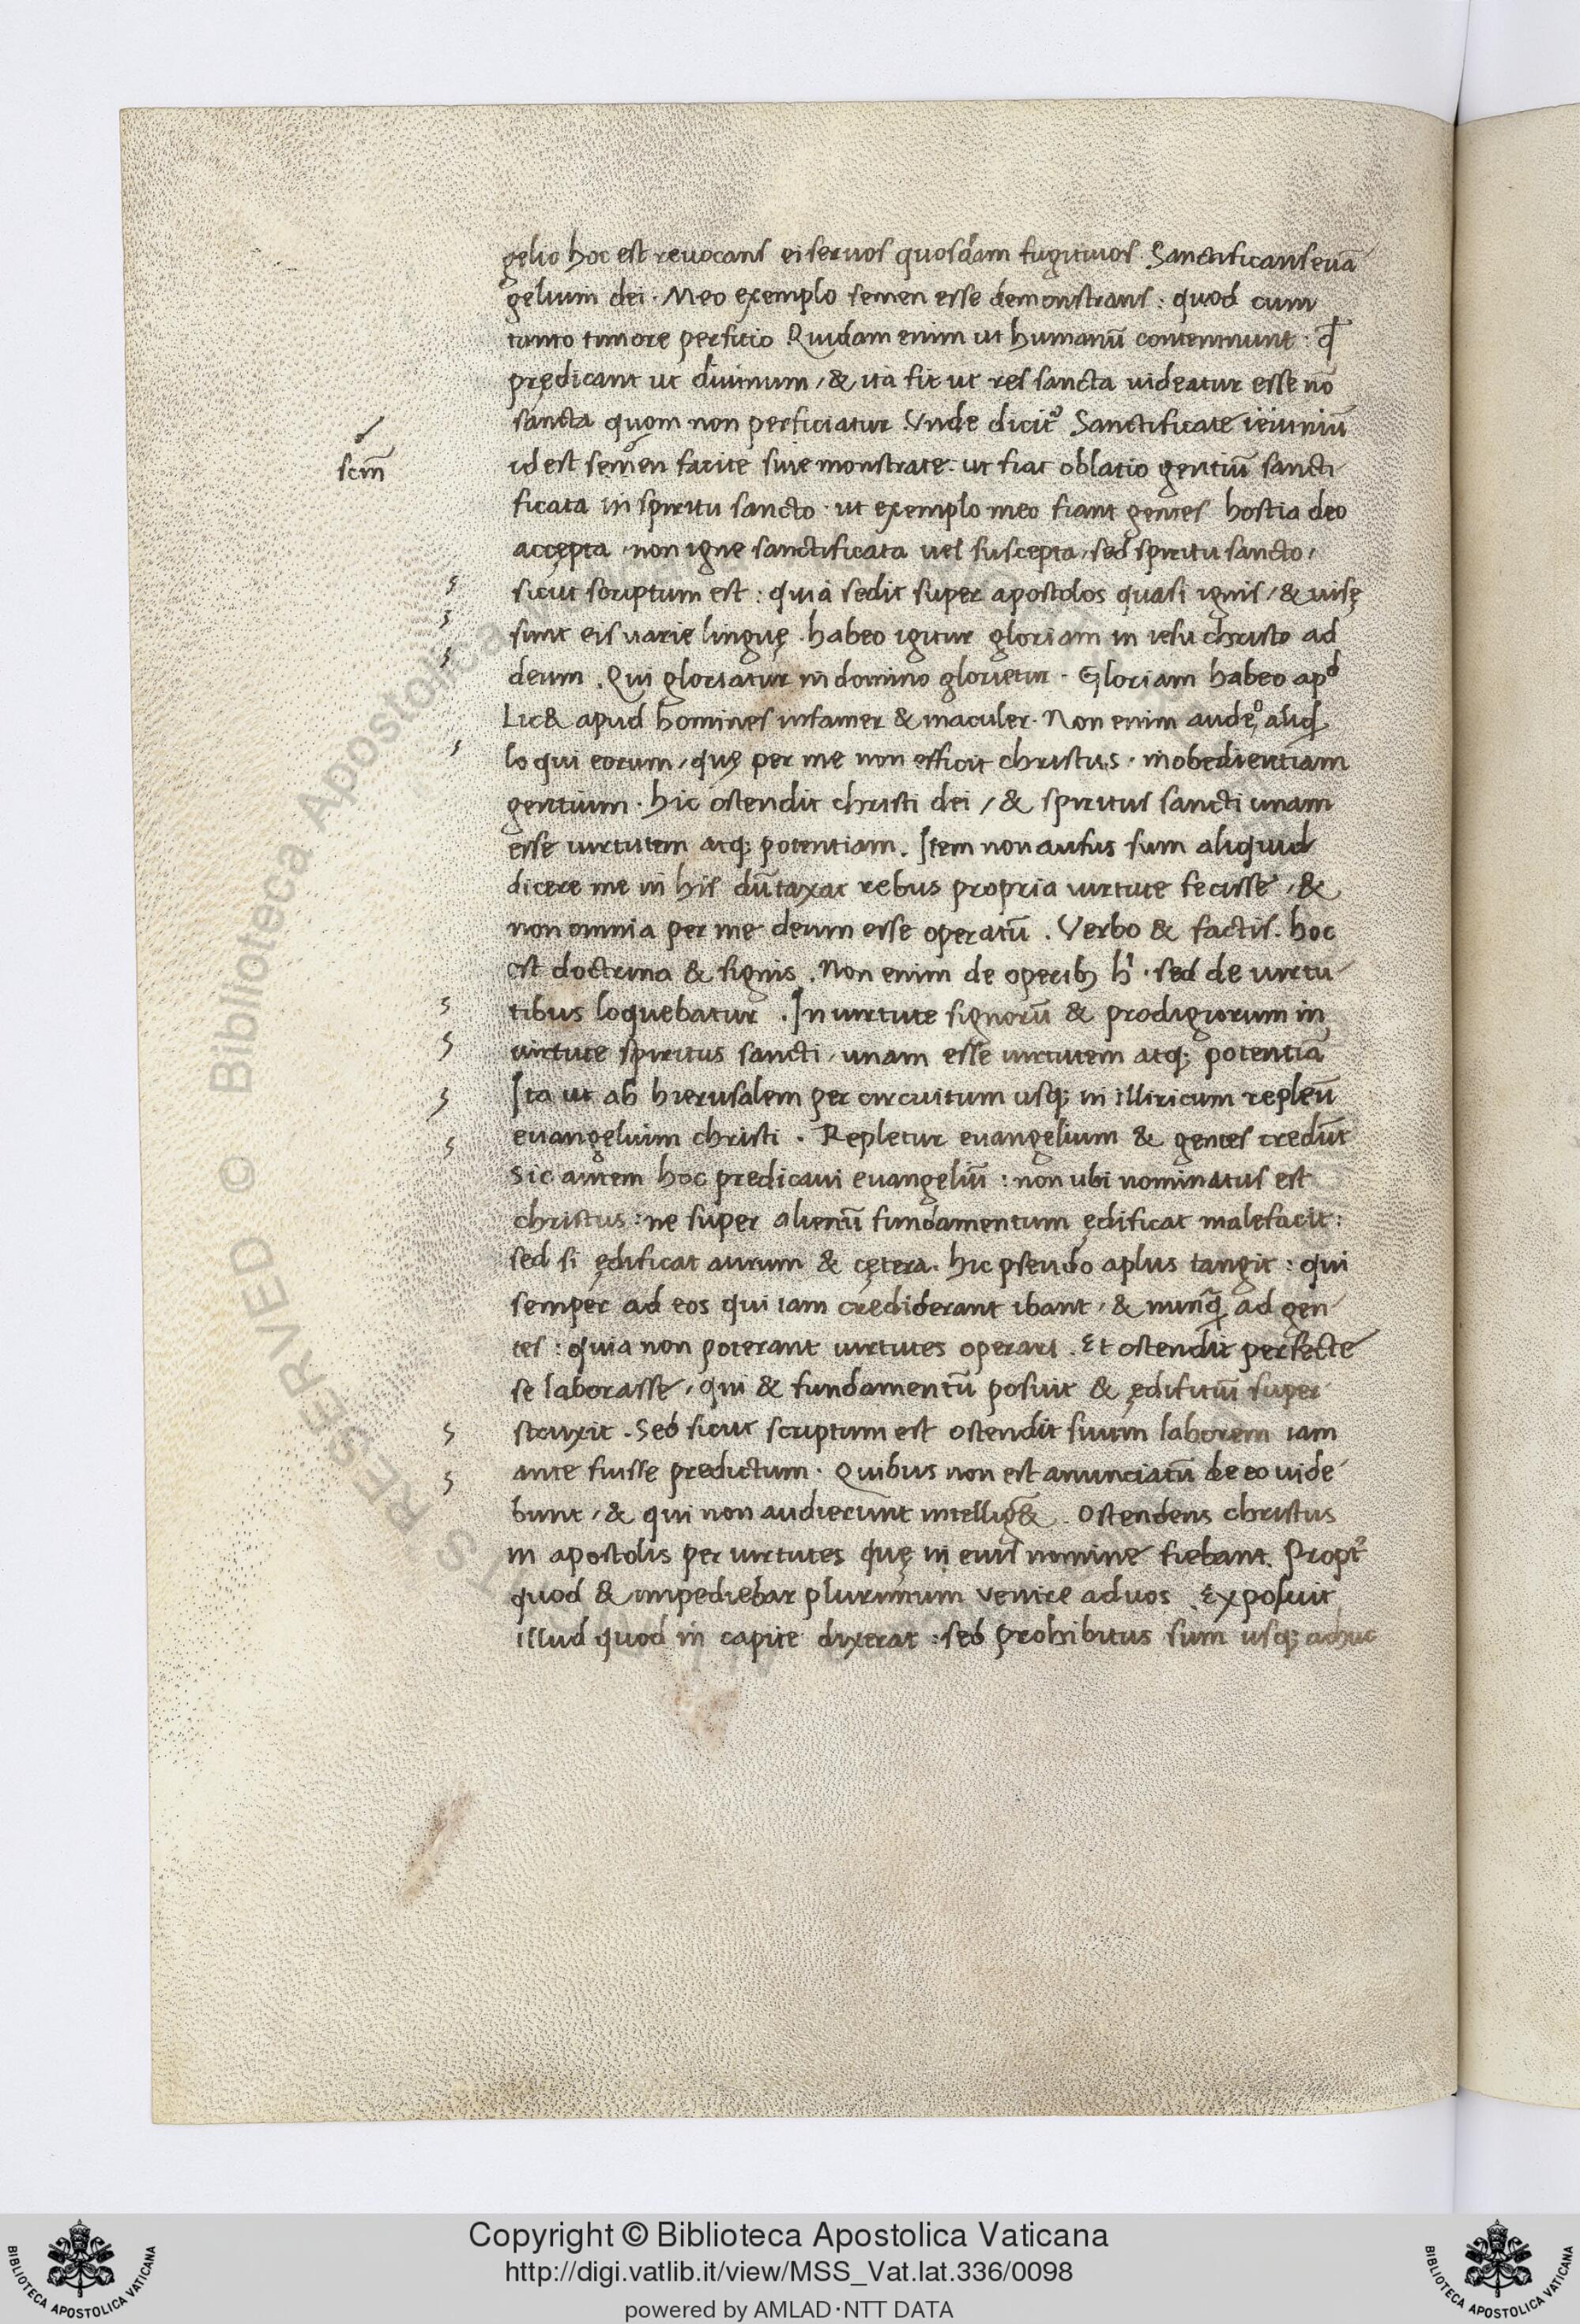 gelio hoc est reuocans ei seruos quosdam fugitiuos. Sanctificans euā
gelium dei. Meo exemplo semen esse demonstrans: quod cum
tanto timore perficio Quidam enim ut humanū contemnunt: qđ
prędicant ut diuinum, & ita fit ut res sancta uideatur esse nō
sancta quom non perficiatur. Vnde dicit᷑ Sanctificate ieiuniū
scm̄
id est semen facite siue monstrate. ut fiat oblatio gentiū sancti
ficata in spiritu sancto. ut exemplo meo fiant gentes hostia deo
accępta, non igne sanctificata uel suscepta, sed spiritu sancto,
sicut scriptum est: quia sedit super apostolos quasi ignis, & uisę
sunt eis uarie linguę. habeo igitur gloriam in iesu christo ad
deum. Qui gloriatur in domino glorietur. Gloriam habeo apd
Lic& apud homines infamer & maculer. Non enim audeo aliqd
loqui eorum, quę per me non efficit christus. in obedientiam
gentium. hic ostendit christi dei, & spiritus sancti unam
esse uirtutem atq; potentiam. Item non ausus sum aliquid
dicere me in his dūtaxat rebus propria uirtute fecisse, &
non omnia per me deum esse operatū. Verbo & factis. hoc
est doctrina & signis. Non enim de operib; h'. sed de uirtu
tibus loquebatur. In uirtute signorū & prodigiorum in
uirtute spiritus sancti, unam esse uirtutem atq; potentiā
Ita ut ab hierusalem per circuitum usq; in illiricum repleuī
euangelium christi. Repletur euangelium & gentes credūt
Sic autem hoc predicaui euangeliū: non ubi nominatus est
christus: ne super alienū fundamentum ędificat malefacit:
sed si ędificat aurum & cętera. hic pseudo aplus tangit: qui
semper ad eos qui iam crediderant ibant, & nunq̄ ad gen
tes: quia non poterant uirtutes operari. Et ostendit perfecte
se laborasse, qui & fundamentū posuit & ędifitiū super
struxit. Sed sicut scriptum est ostendit suum laborem iam
ante fuisse predictum. Quibus non est anunciatū de eo uide
bunt, & qui non audierunt intellig&. Ostendens christus
in apostolis per uirtutes quę in eius nomine fiebant. Propt᷑
quod & impediebar plurimum venire ad uos. Exposuit
illud quod in capite dixerat: sed prohibitus sum usq; adhuc
Copyright © Biblioteca Apostolica Vaticana
http://digi.vatlib.it/view/MSS_Vat.lat.336/0098
powered by AMLAD·NTT DATA